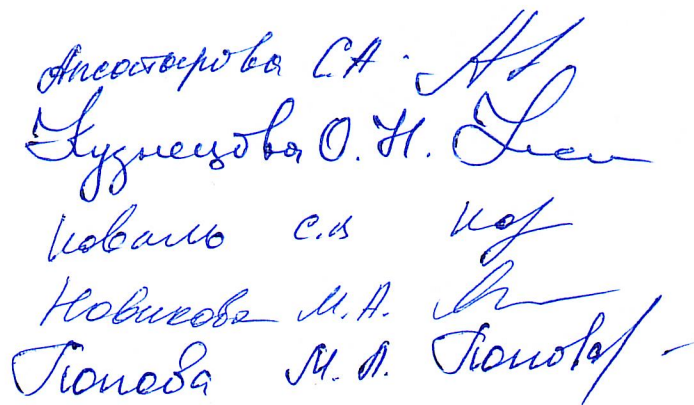 Апсатарова С.А.
Кузнецова О.Н.
Коваль С.В
Новикова М.А.
Попова М.Л. Попова